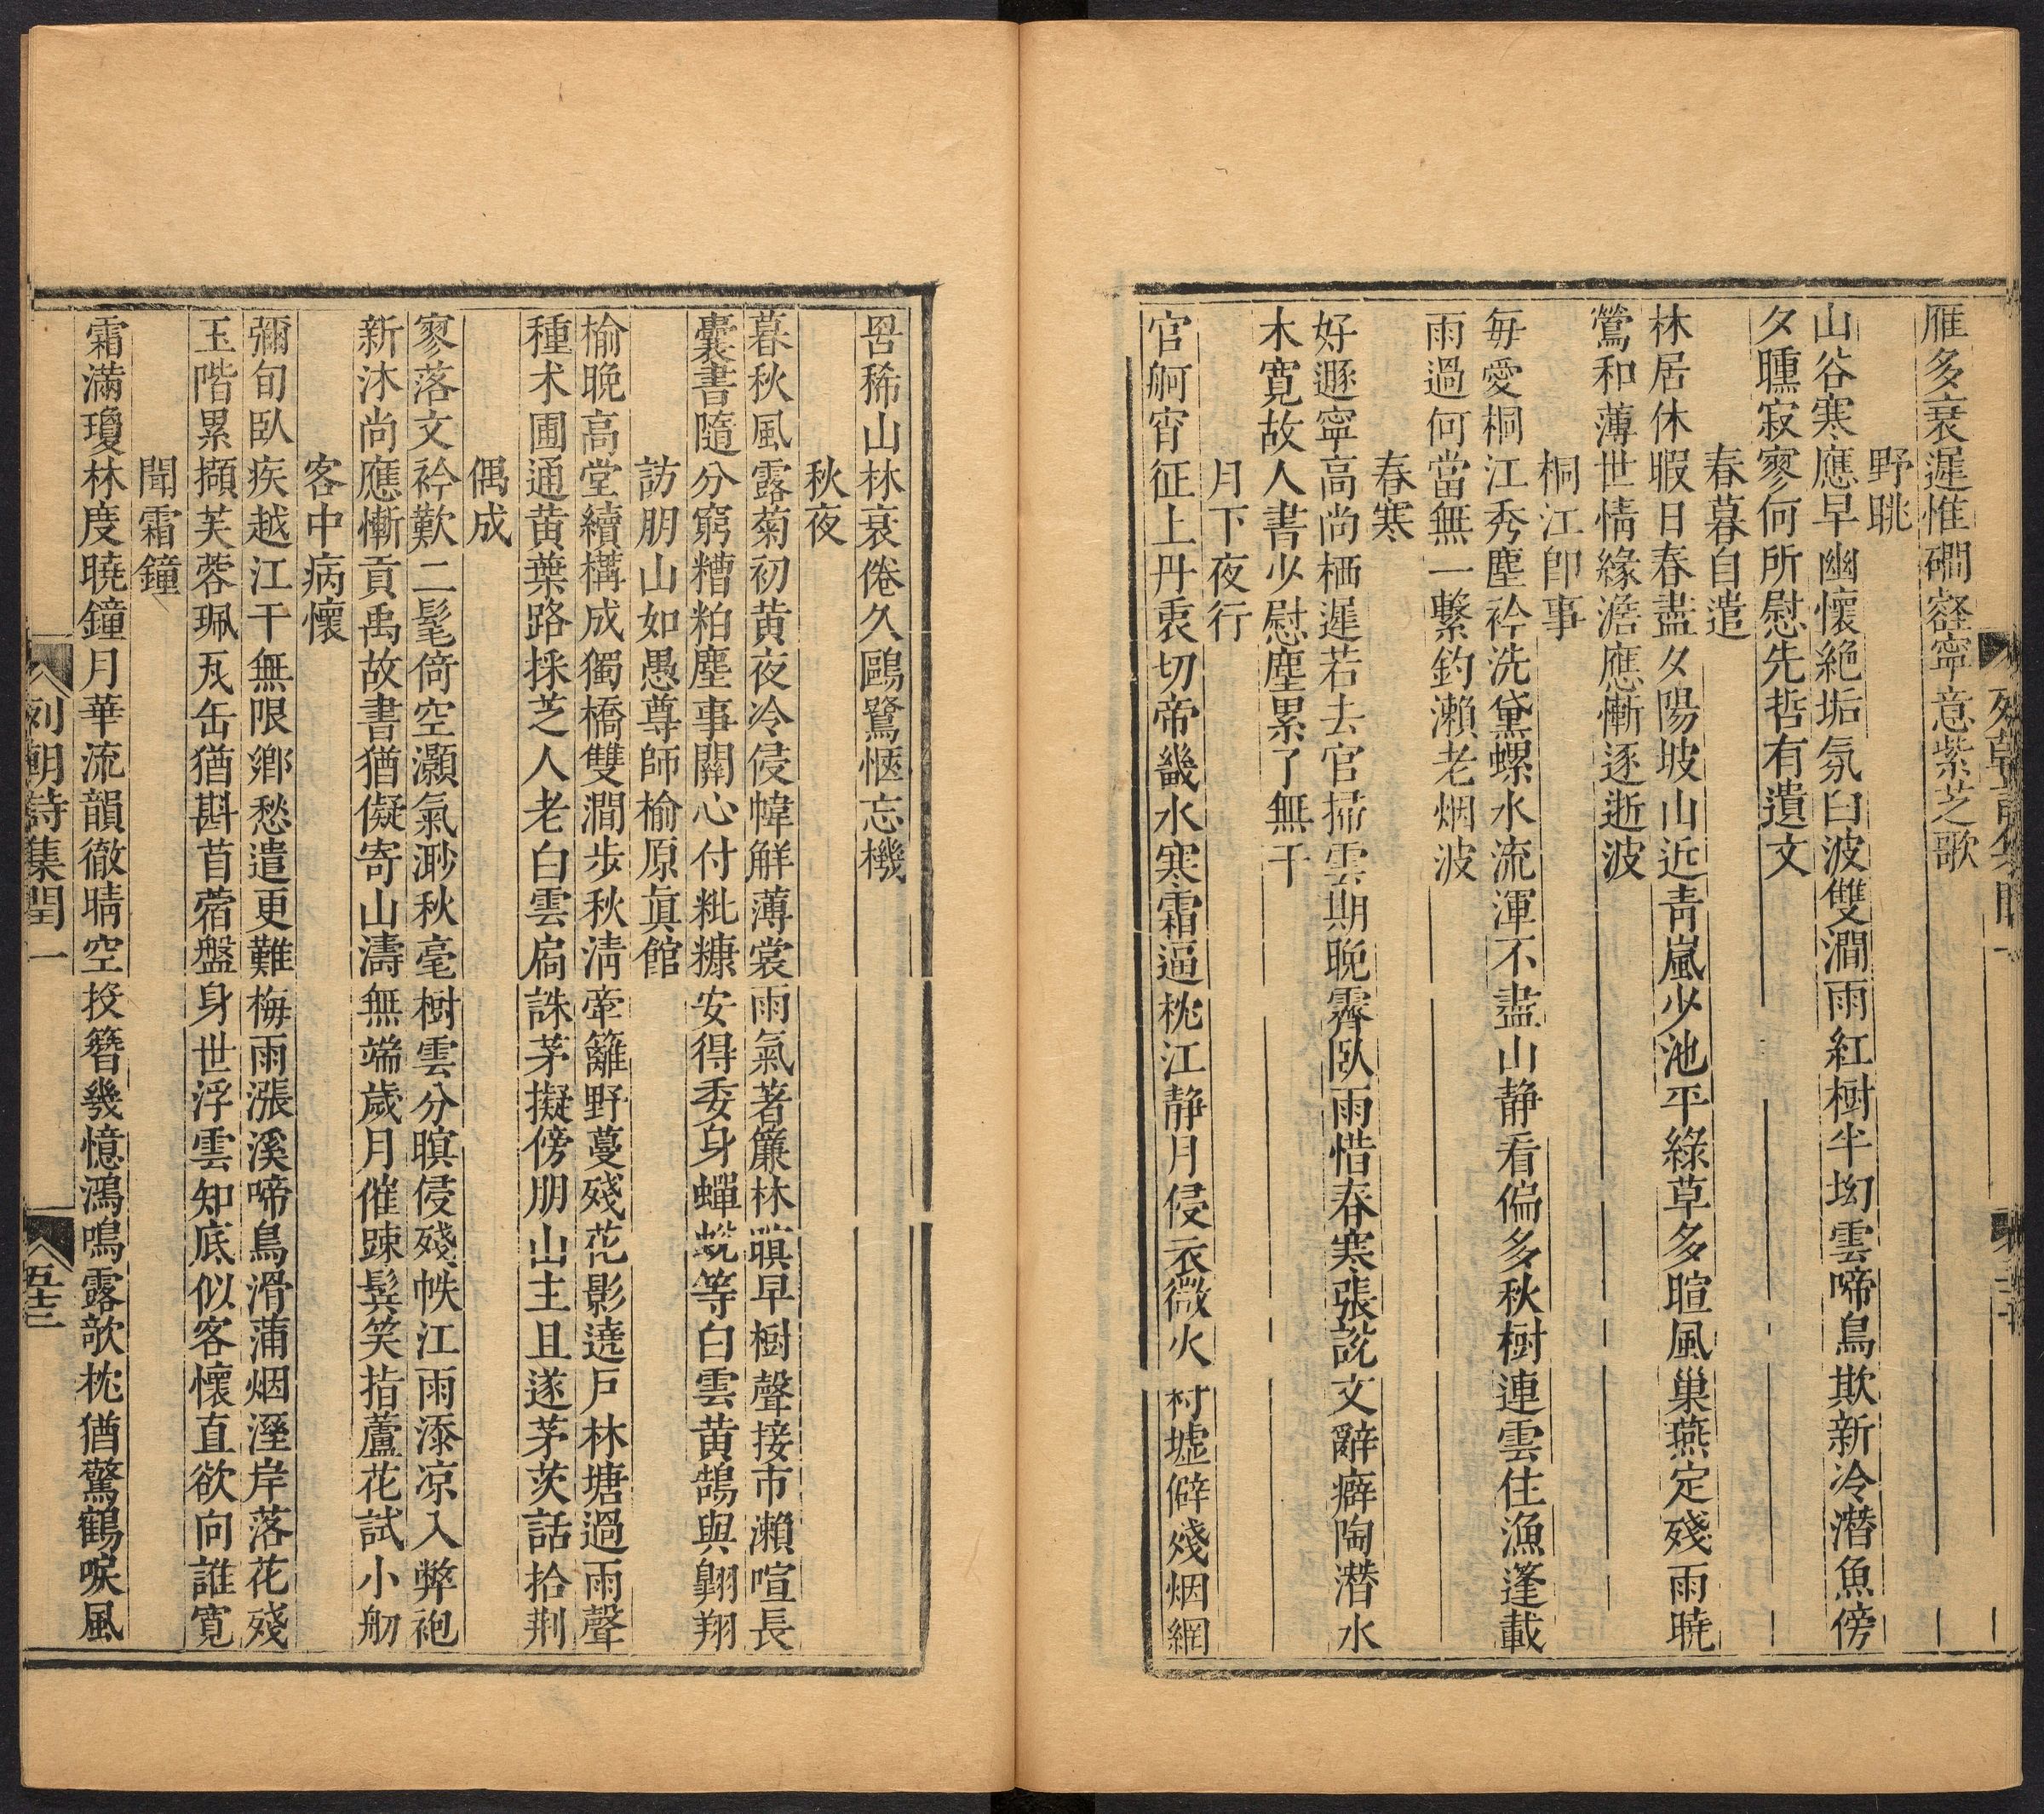 雁多衰遲惟磵壑寧意紫芝歌
野眺
山谷寒應早幽懷絶垢氛白波雙澗雨紅樹半坳雲啼鳥欺新冷潜魚傍
夕曛寂寥何所慰先哲有遺文
春暮自遣
林居休暇日春盡夕陽坡山近靑嵐少池平綠草多暄風巢燕定殘雨曉
鶯和薄世情緣澹應慚逐逝波
桐江即事
每愛桐江秀塵衿洗黛螺水流渾不盡山静看偏多秋樹連雲住漁篷載
雨過何當無一繫釣瀨老烟波
春寒
好遯寧高尚栖遲若去官掃雲期晚霽臥雨惜春寒張說文辭癖陶潜水
木寛故人書少慰塵累了無干
月下夜行
官舸宵征上丹衷切帝畿水寒霜逼枕江静月侵衣微火村墟僻殘烟網
罟稀山林衰倦久鷗鷺愜忘機
秋夜
暮秋風露菊初黄夜冷侵幃觧薄裳雨氣著簾林暝早樹聲接市瀨喧長
囊書隨分窮糟粕塵事關心付粃糠安得委身蟬蛻等白雲黄鵠與翺翔
訪朋山如愚尊師榆原眞館
榆晚高堂續構成獨橋雙澗步秋淸牽籬野蔓殘花影遶戸林塘過雨聲
種术圃通黄葉路採芝人老白雲扃誅茅擬傍朋山主且遂茅茨話拾荆
偶成
寥落文衿歎二髦倚空灝氣渺秋毫樹雲分暝侵殘帙江雨添凉入弊袍
新沐尚應慚貢禹故書猶儗寄山濤無端歲月催踈鬂笑指蘆花試小舠
客中病懷
彌旬臥疾越江干無限鄉愁遣更難梅雨漲溪啼鳥滑蒲烟溼岸落花殘
玉階累擷芙蓉珮瓦缶猶斟苜蓿盤身世浮雲知底似客懷直欲向誰寛
聞霜鐘
霜滿瓊林度曉鐘月華流韻徹晴空投簪幾憶鴻鳴露欹枕猶驚鶴唳風
列朝詩集閏一
五十三